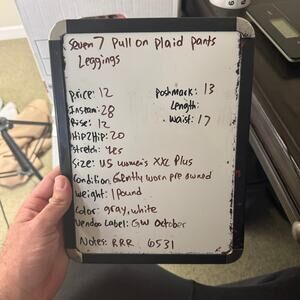 Seven7 Pull on Plaid Pants
Leggings
Price: 12
Poshmark: 13
Inseam: 28
Length:
Rise: 12
Waist: 17
Hip2Hip: 20
Stretch: Yes
Size: US women's XXL Plus
Condition: Gently worn pre owned
Weight: 1 pound
Color: gray, white
Vendoo Label: GW October
Notes: RRR 6531